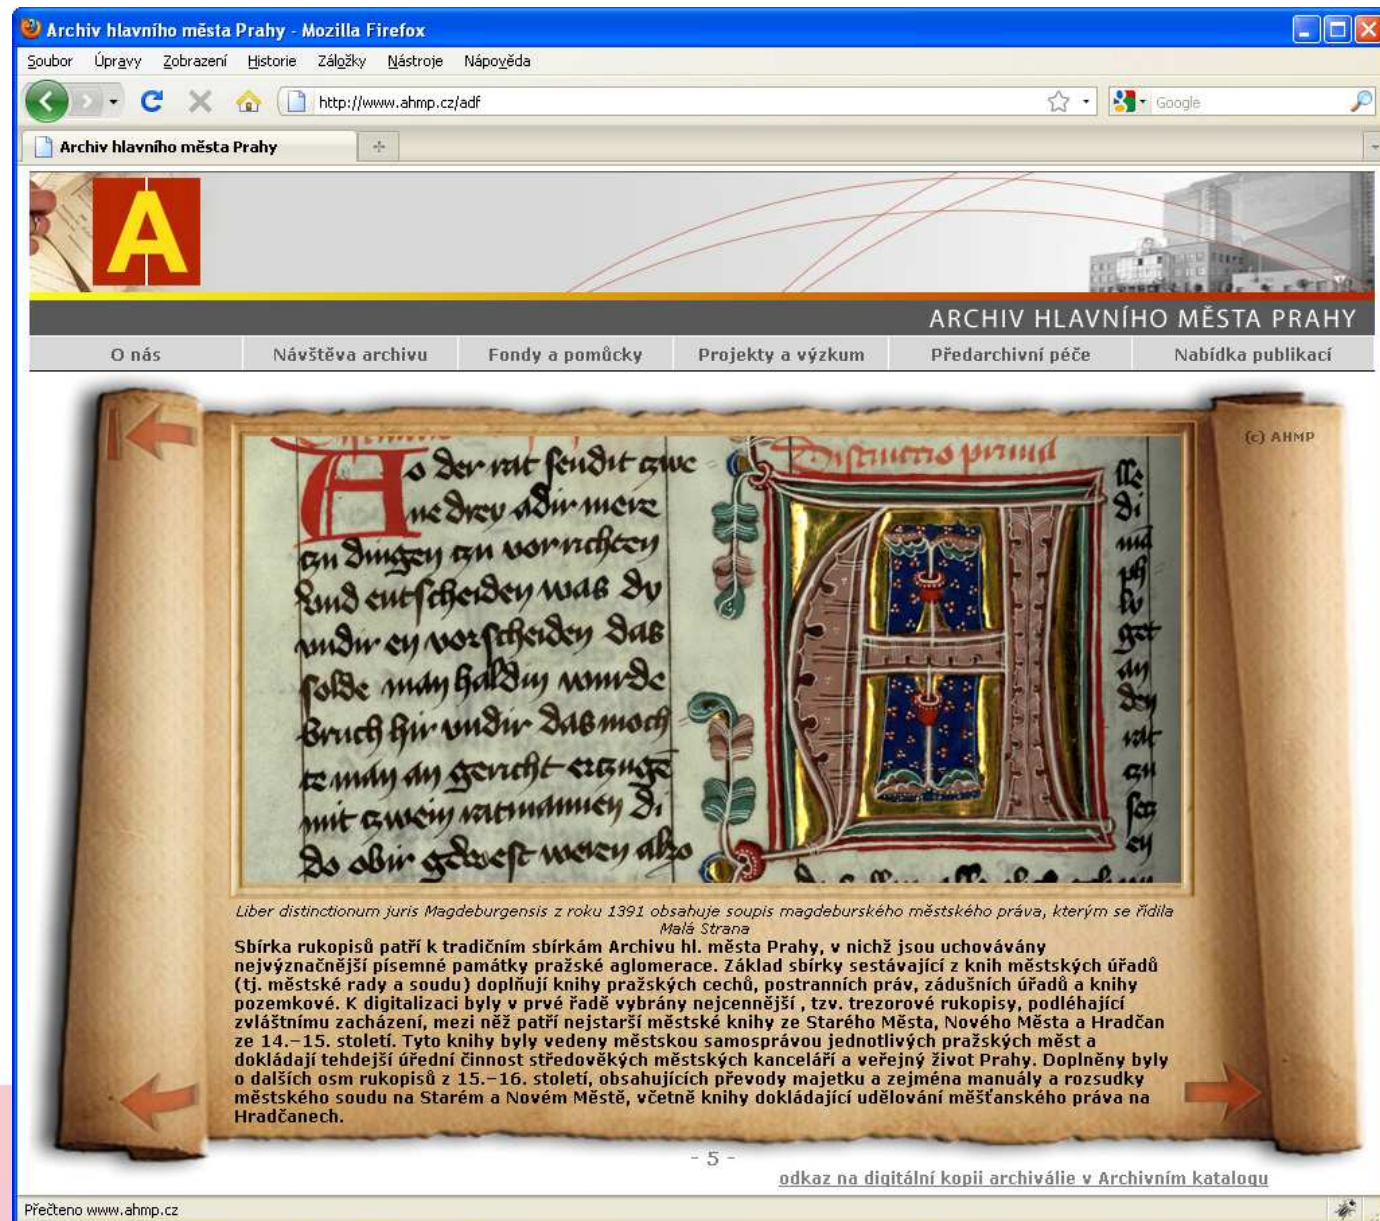 Archiv hlavního města Prahy - Mozilla Firefox
Soubor Úpravy Zobrazení Historie Záložky Nástroje Nápověda
http://www.ahmp.cz/adf Google
Archiv hlavního města Prahy
A
ARCHIV HLAVNÍHO MĚSTA PRAHY
O nás Návštěva archivu Fondy a pomůcky Projekty a výzkum Předarchivní péče Nabídka publikací
(c) AHMP
Distinctio prima
Ao der rat sendit czwe
ne drey adir mere
czu dingen czu vorrichten
Und entscheiden was dy
undir en vorscheiden das
solde man haldin wurde
bruch hir undir das moch
te man an gericht erczuge
mit czwein ratmannen di
do obir gewest weren also
A
Liber distinctionum juris Magdeburgensis z roku 1391 obsahuje soupis magdeburského městského práva, kterým se řídila
Malá Strana
Sbírka rukopisů patří k tradičním sbírkám Archivu hl. města Prahy, v nichž jsou uchovávány
nejvýznačnější písemné památky pražské aglomerace. Základ sbírky sestávající z knih městských úřadů
(tj. městské rady a soudu) doplňují knihy pražských cechů, postranních práv, zádušních úřadů a knihy
pozemkové. K digitalizaci byly v prvé řadě vybrány nejcennější , tzv. trezorové rukopisy, podléhající
zvláštnímu zacházení, mezi něž patří nejstarší městské knihy ze Starého Města, Nového Města a Hradčan
ze 14.–15. století. Tyto knihy byly vedeny městskou samosprávou jednotlivých pražských měst a
dokládají tehdejší úřední činnost středověkých městských kanceláří a veřejný život Prahy. Doplněny byly
o dalších osm rukopisů z 15.–16. století, obsahujících převody majetku a zejména manuály a rozsudky
městského soudu na Starém a Novém Městě, včetně knihy dokládající udělování měšťanského práva na
Hradčanech.
- 5 -
odkaz na digitální kopii archiválie v Archivním katalogu
Přečteno www.ahmp.cz